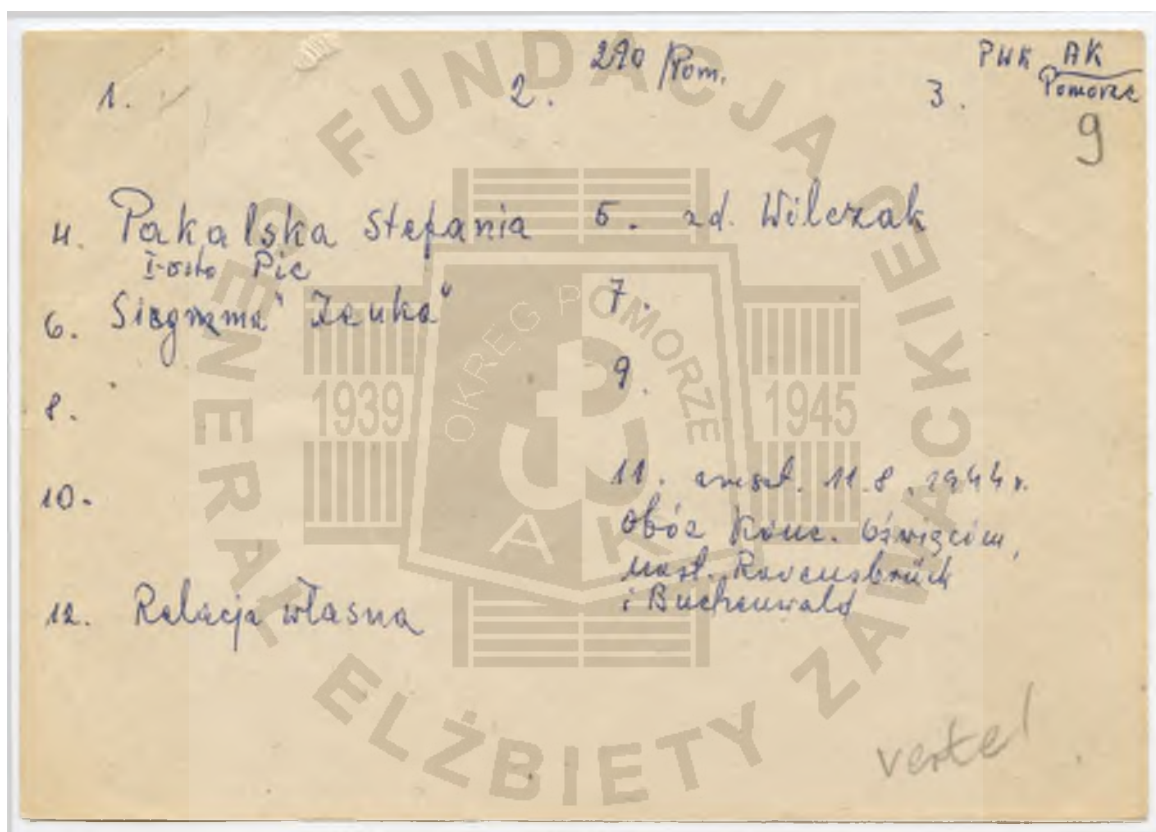 1.
2. 290/Pom.
3. PWK AK
Pomorze
9
4. Pakalska Stefania
5. zd. Wilczak
I-osto Pic
6. "Janka"
7.
8.
9.
10.
11. areszt. 11.8.1944 r.
obóz konc. Oświęcim,
nast. Ravensbrück
i Buchenwald
12. Relacja własna
verte!
FUNDACJA
GENERAŁ ELŻBIETY ZAWACKIEJ
OKRĘG POMORZE
1939
1945
AK